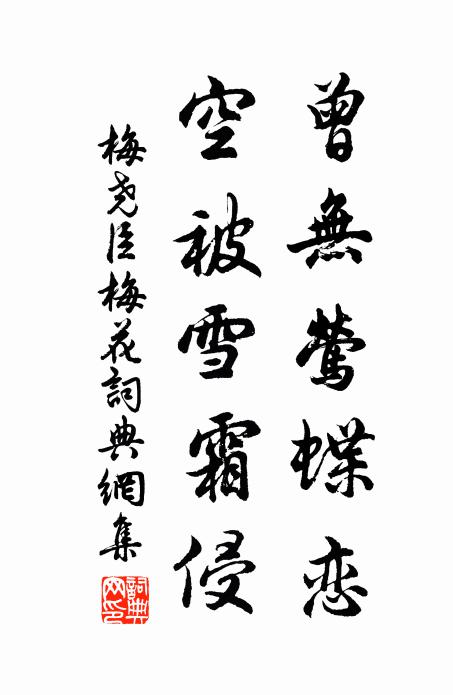 曾無鶯蝶恋
空被雪霜侵
梅尧臣梅花詞典網集
詞典网印